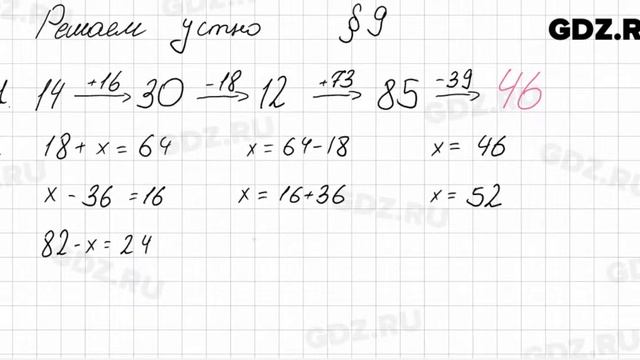 Решаем устно § 9
GDZ.R
1. 14 +16→ 30 -18→ 12 +73→ 85 -39→ 46
18 + x = 64 x = 64 - 18 x = 46
x - 36 = 16 x = 16 + 36 x = 52
82 - x = 24
GDZ.RU
GDZ.RU
GDZ.RU
GDZ.RU